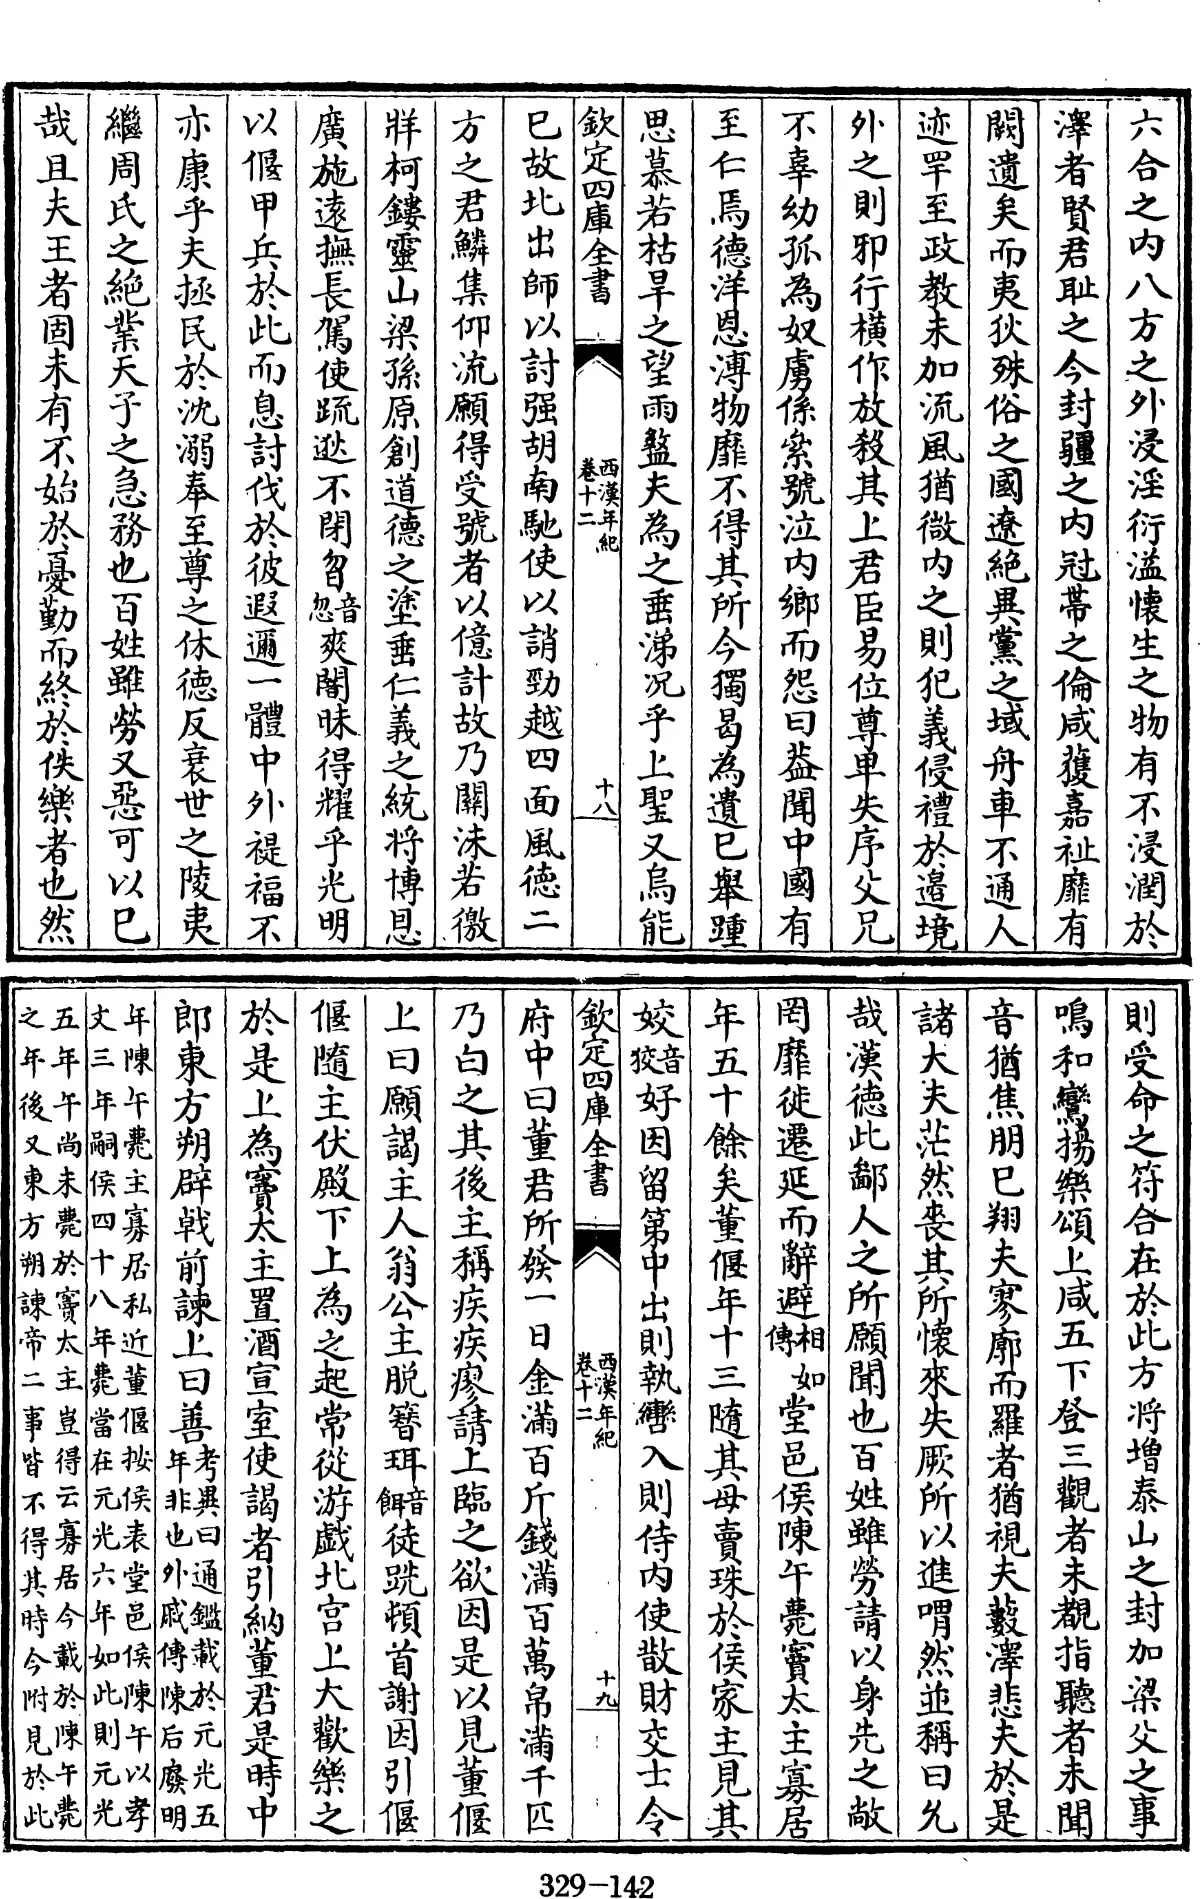 六合之内八方之外浸淫衍溢懐生之物有不浸潤於
澤者賢君耻之今封疆之内冠帶之倫咸獲嘉祉靡有
闕遺矣而夷狄殊俗之國遼絶異黨之域舟車不通人
迹罕至政教未加流風猶微内之則犯義侵禮於邉境
外之則邪行横作放殺其上君臣易位尊卑失序父兄
不辜幼孤為奴虜係纍號泣内鄉而怨曰葢聞中國有
至仁焉德洋恩溥物靡不得其所今獨曷為遺巳舉踵
思慕若枯旱之望雨盭夫為之垂涕况乎上聖又烏能
欽定四庫全書
西漢年紀
卷十二
十八
巳故北出師以討强胡南馳使以誚勁越四面風德二
方之君鱗集仰流願得受號者以億計故乃關沬若徼
牂柯鏤靈山梁孫原創道德之塗垂仁義之統將博恩
廣施逺撫長駕使疏逖不閉曶音忽爽闇昧得耀乎光明
以偃甲兵於此而息討伐於彼遐邇一體中外禔福不
亦康乎夫拯民於沈溺奉至尊之休德反衰世之陵夷
繼周氏之絶業天子之急務也百姓雖勞又惡可以巳
哉且夫王者固未有不始於憂勤而終於佚樂者也然
則受命之符合在於此方將増泰山之封加梁父之事
鳴和鸞揚樂頌上咸五下登三觀者未覩指聽者未聞
音猶焦朋巳翔夫寥廓而羅者猶視夫藪澤悲夫於是
諸大夫茫然喪其所懐來失厥所以進喟然並稱曰允
哉漢德此鄙人之所願聞也百姓雖勞請以身先之敞
罔靡徙遷延而辭避相如傳堂邑侯陳午薨竇太主寡居
年五十餘矣董偃年十三隨其母賣珠於侯家主見其
姣音狡好因留第中出則執轡入則侍内使散財交士令
欽定四庫全書
西漢年紀
卷十二
十九
府中曰董君所發一日金滿百斤錢滿百萬帛滿千匹
乃白之其後主稱疾疾瘳請上臨之欲因是以見董偃
上曰願謁主人翁公主脱簪珥音餌徒跣頓首謝因引偃
偃隨主伏殿下上為之起常從游戲北宫上大歡樂之
於是上為竇太主置酒宣室使謁者引納董君是時中
郎東方朔辟戟前諫上曰善考異曰通鑑載於元光五
年非也外戚傳陳后廢明
年陳午薨主寡居私近董偃按侯表堂邑侯陳午以孝
文三年嗣侯四十八年薨當在元光六年如此則元光
五年午尚未薨於竇太主豈得云寡居今載於陳午薨
之年後又東方朔諫帝二事皆不得其時今附見於此
329-142